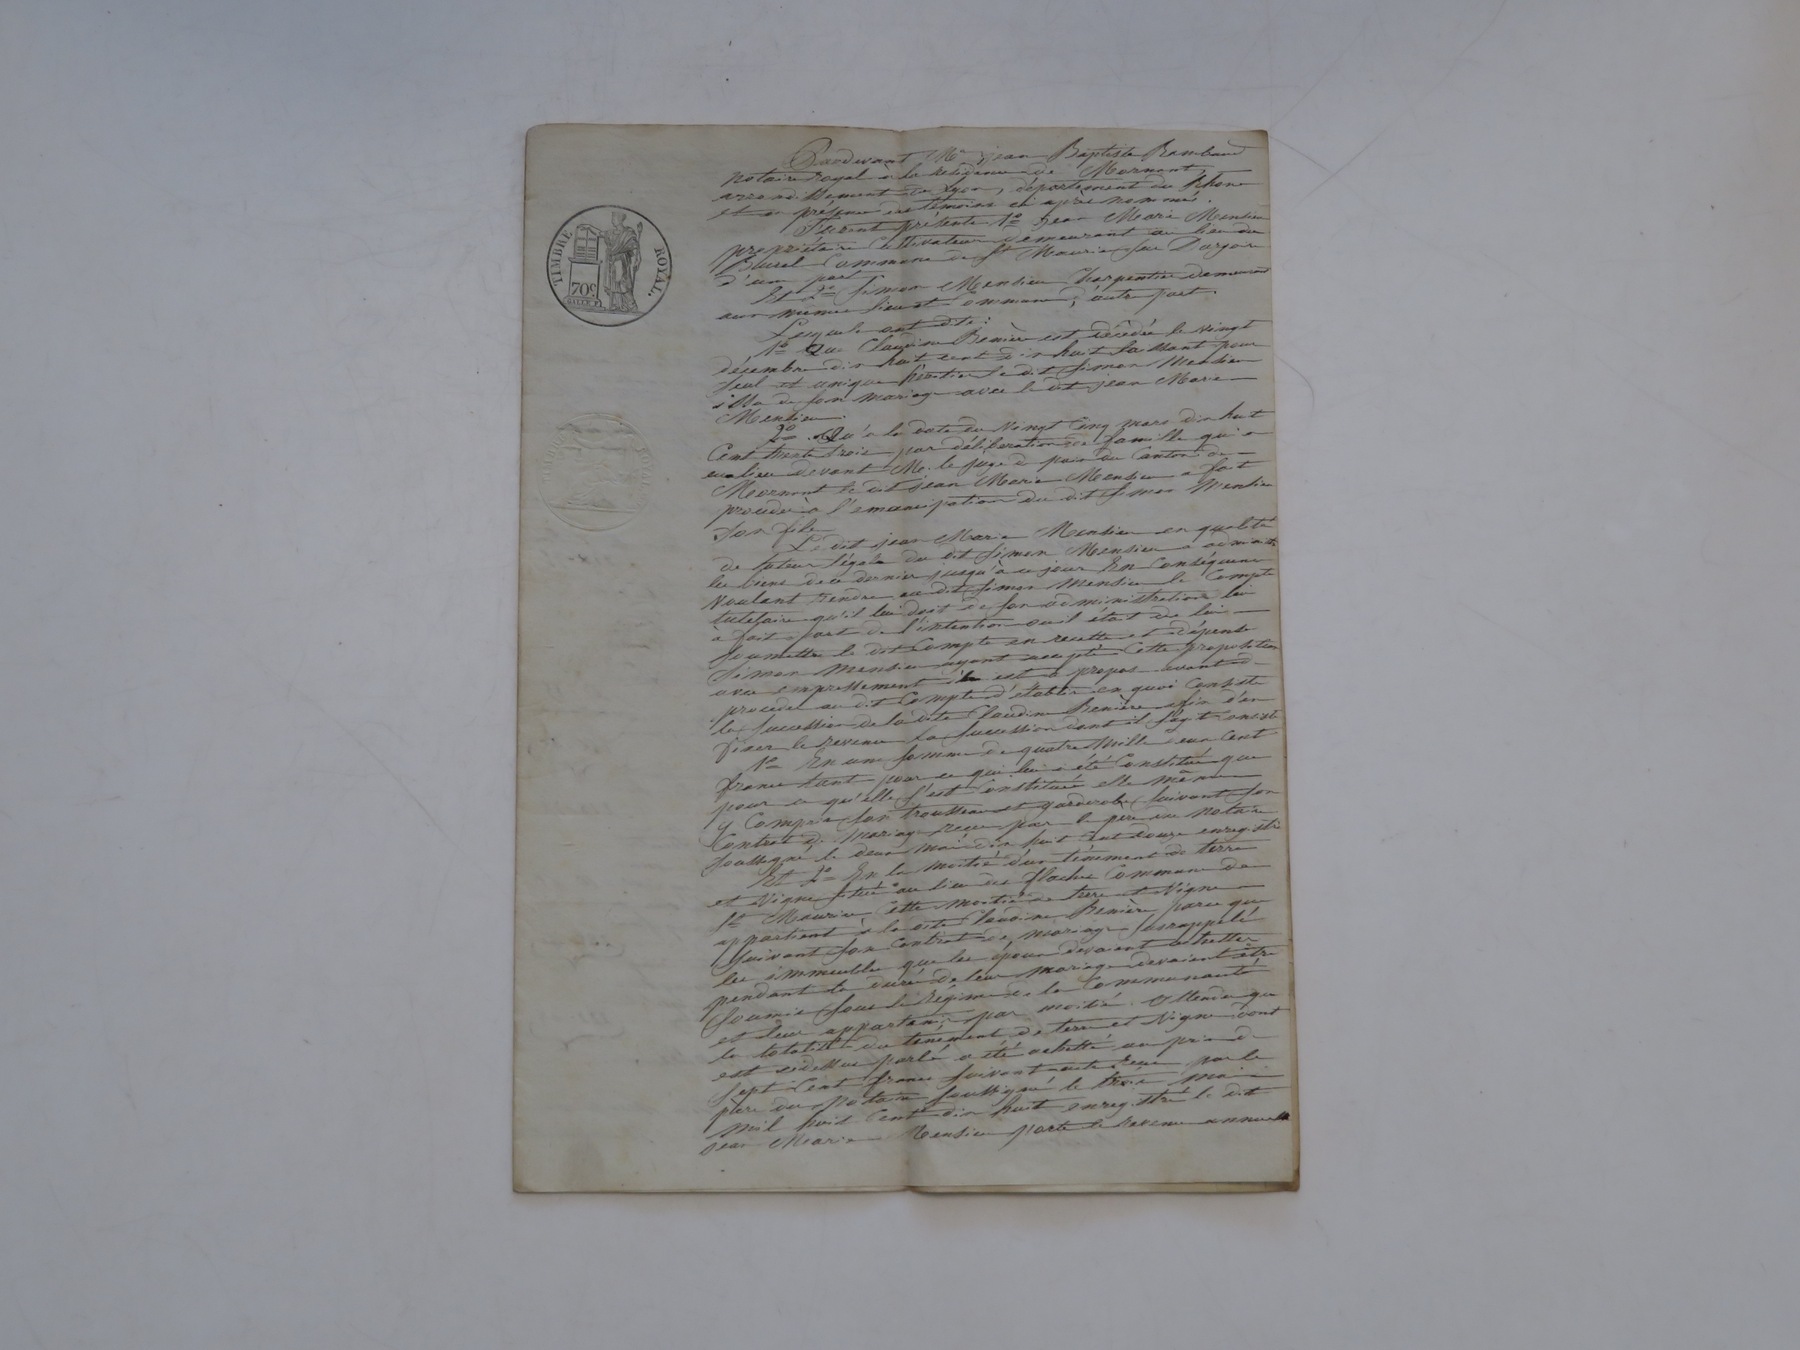 TIMBRE ROYAL.
70c
Pardevant Me jean Baptiste Rambaud
notaire royal à la résidence de Mornant,
arrondissement de Lyon, département du Rhone
et en présence des témoins ci après nommés.
Furent présents 1o jean Marie Mensieu
propriétaire cultivateur demeurant au lieu du
Burel Commune de St Maurice sur Dargoire
d'une part
Et 2o Simon Mensieu Charpentier demeurant
aux mêmes lieu et Commune, d'autre part.
Lesquels ont dit:
1o Que Claudine Benière est décédée le vingt
décembre dix huit cent dix huit laissant pour
seul et unique héritier le dit Simon Mensieu
issu de son mariage avec le dit jean Marie
Mensieu.
2o Qu'à la date du vingt Cinq mars dix huit
Cent trente trois par délibération de famille qui a
eu lieu devant Mr le juge de paix du Canton de
Mornant le dit jean Marie Mensieu a fait
procéder à l'émancipation du dit Simon Mensieu
son fils
Le dit jean Marie Mensieu en qualité
de tuteur légale du dit Simon Mensieu a administré
les biens de ce dernier jusqu'à ce jour En Conséquence
Voulant rendre au dit Simon Mensieu le Compte
tutélaire qu'il lui doit de son administration lui
à fait part de l'intention ou il était de lui
soumettre le dit Compte en recette et dépense
Simon Mensieu ayant accepté Cette proposition
avec empressement il est à propos avant de
procéder au dit Compte d'établir en quoi Consiste
la succession de la dite Claudine Benière afin d'en
fixer le revenu La succession dont il s'agit consiste
1o En une somme de quatre Mille Cent
francs tant pour ce qui lui a été Constitué que
pour ce qu'elle s'est Constituée elle même
y Compris son trousseau et garderobe suivant son
Contrat de mariage reçu par le père du notaire
soussigné le deux mai dix huit cent douze enregistré
Et 2o En la moitié d'un ténement de terre
et Vigne situé au lieu des flaches Commune de
St Maurice Cette moitié de terre et Vigne
appartient à la dite Claudine Benière parce que
suivant son Contrat de mariage susrappelé
les immeubles que les époux devaient achetter
pendant la durée de leur mariage devaient être
soumis sous le régime de la Communauté
et leur appartenir par moitié. Attendu que
la totalité du ténement de terre et Vigne dont
est cidessus parlé a été achetté au prix de
sept Cent francs suivant acte reçu par le
père du Notaire soussigné le trois mai
mil huit Cent dix huit enregistré le dit
jean Marie Mensieu porte le revenu annuel